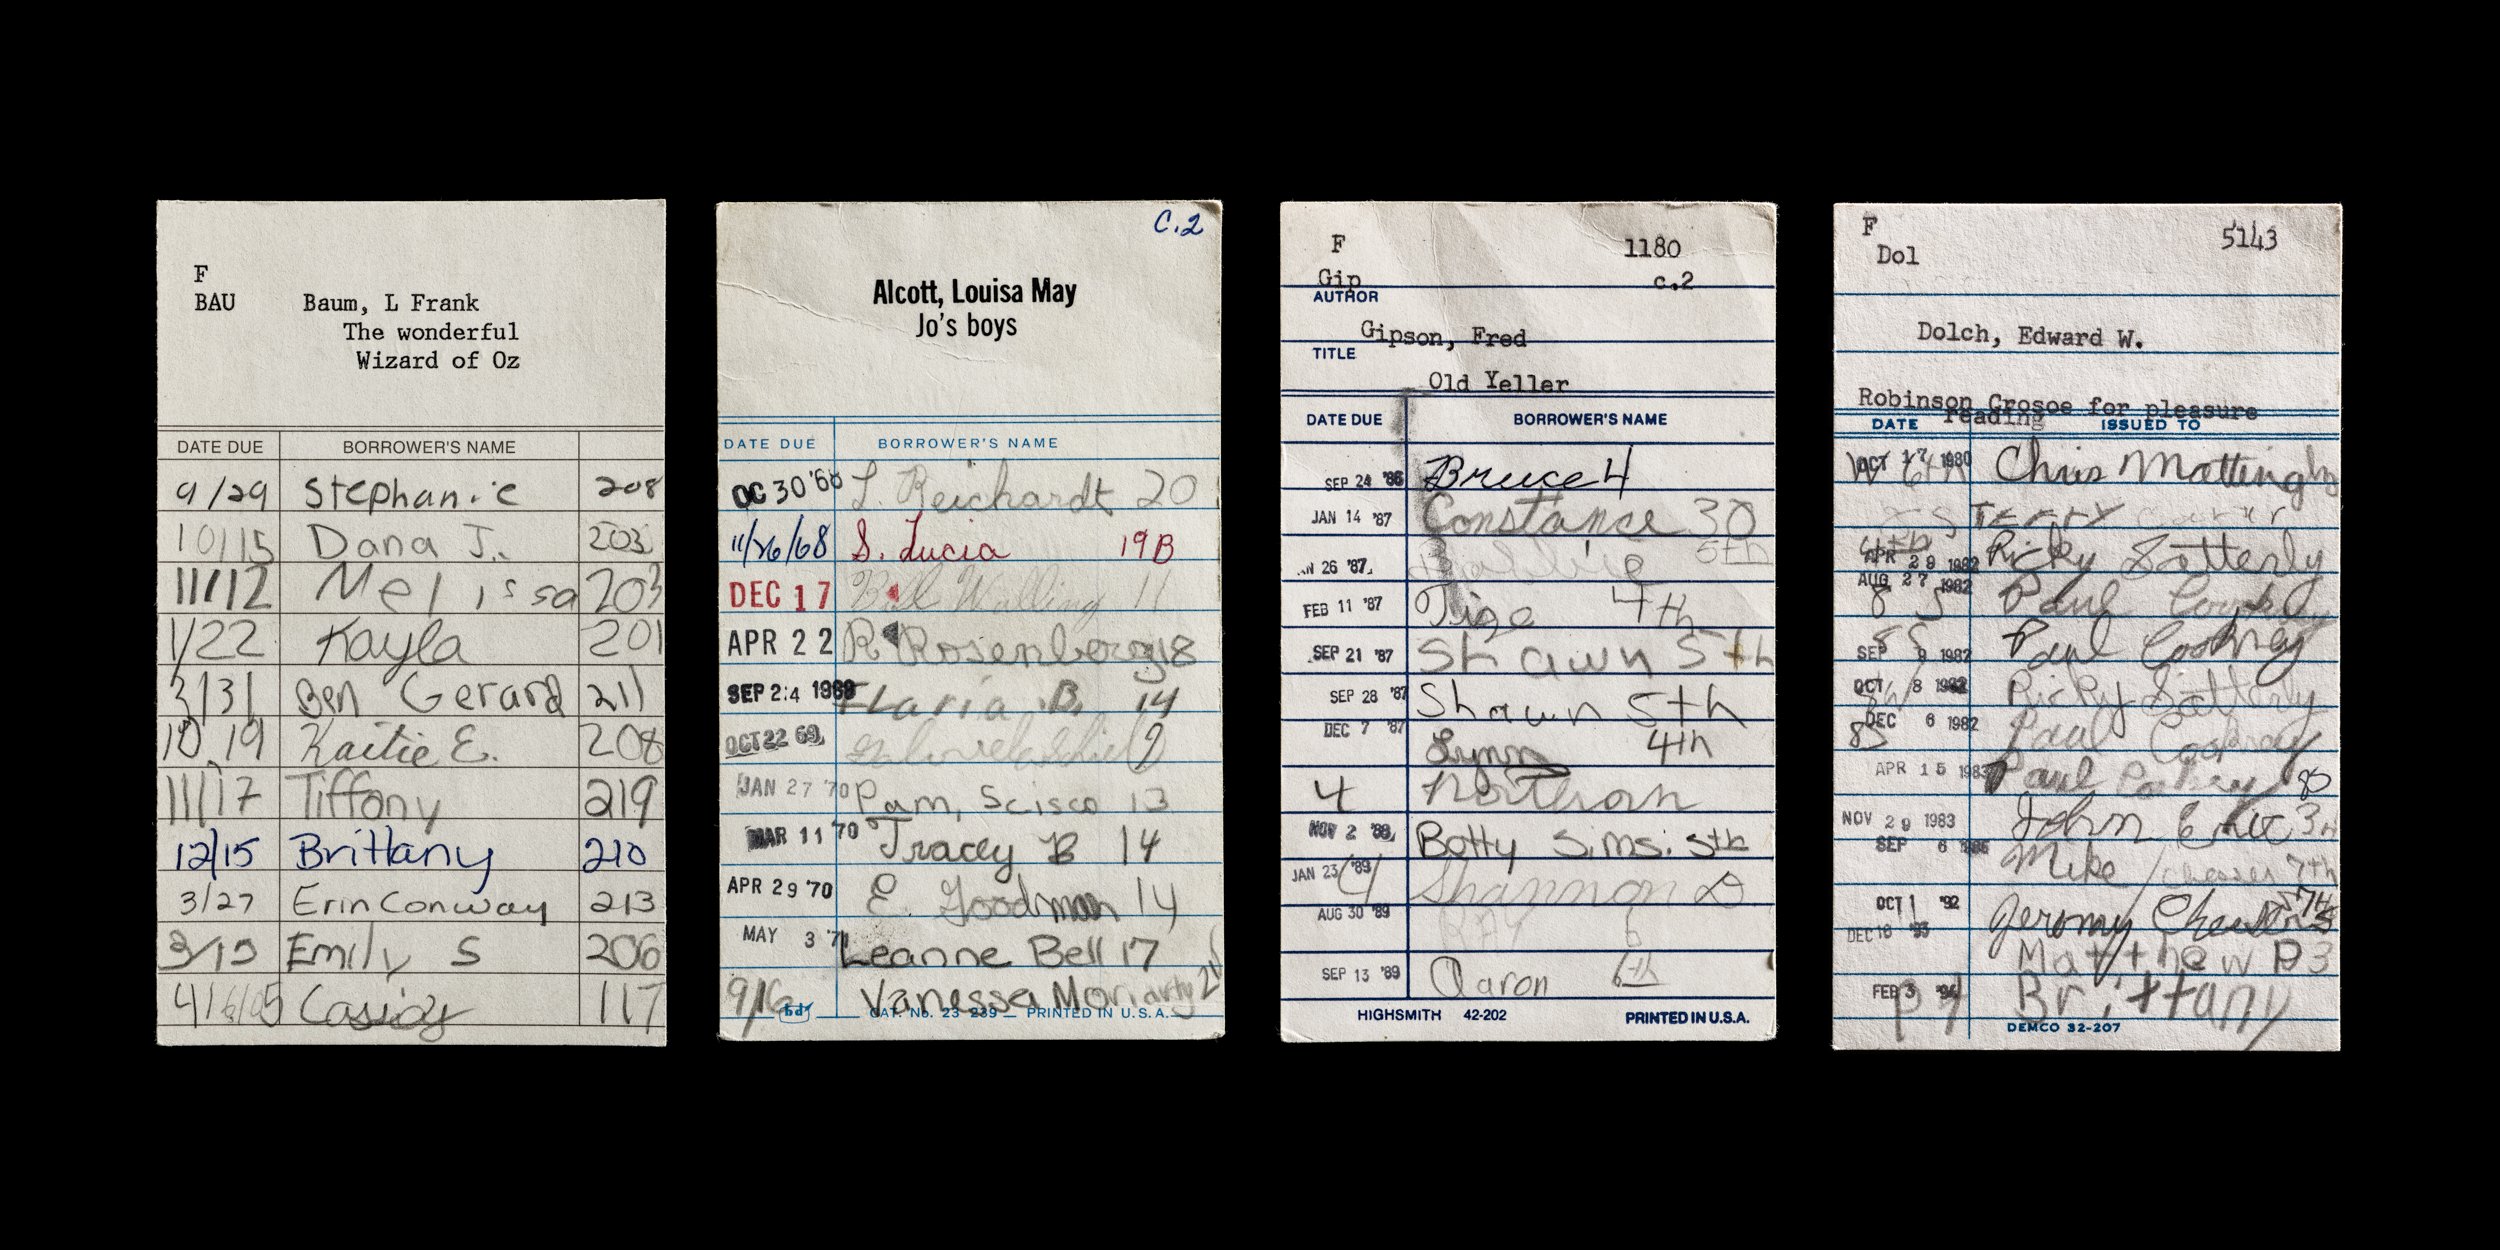 F
BAU Baum, L Frank
The wonderful
Wizard of Oz
DATE DUE BORROWER'S NAME
9/29 Stephanie 208
10/15 Dana J. 203
11/12 Melissa 203
1/22 Kayla 201
3/31 Ben Gerard 211
10/19 Kaitie E. 208
11/17 Tiffony 219
12/15 Brittany 210
3/27 Erin Conway 213
3/15 Emily S 206
4/6/05 Cassidy 117
C.2
Alcott, Louisa May
Jo's boys
DATE DUE BORROWER'S NAME
OC 30 '68 L. Reichardt 20
11/26/68 S. Lucia 19B
DEC 17 Walling 11
APR 22 R. Rosenberg 18
SEP 24 1969 Ilaria B. 14
OCT 22 69
JAN 27 '70 Pam, Scisco 13
MAR 11 '70 Tracey B 14
APR 29 '70 E. Goodman 14
MAY 3 '71 Leanne Bell 17
9/16 Vanessa Moriarty 21
bd CAT. No. 23 239 — PRINTED IN U.S.A.
F 1180
Gip c.2
AUTHOR
Gipson, Fred
TITLE
Old Yeller
DATE DUE BORROWER'S NAME
SEP 24 '86 Bruce 4
JAN 14 '87 Constance 30
JAN 26 '87 5th
FEB 11 '87 4th
SEP 21 '87 Shawn 5th
SEP 28 '87 Shawn 5th
DEC 7 '87 Lynn 4th
4
NOV 2 '88 Botty Sims. 5th
JAN 23 '89 4 Shannon D
AUG 30 '89 RAY 6
SEP 13 '89 Aaron 6th
HIGHSMITH 42-202 PRINTED IN U.S.A.
F 5143
Dol
Dolch, Edward W.
Robinson Crosoe for pleasure
reading
DATE ISSUED TO
OCT 17 1980 Chris Mattingly
Terry
APR 29 1982 Ricky Satterly
AUG 27 1982 8 5 Paul
SEP 9 1982 85 Paul Cooksey
OCT 8 1982 Ricky Satterly
DEC 6 1982 85 Paul Cooksey
APR 15 1983 Paul Cooksey 85
NOV 29 1983 John
SEP 6 Mike 7th
OCT 1 '92 Jeremy 7th
DEC 18 '93 Matthew P3
FEB 3 '94 P4 Brittany
DEMCO 32-207